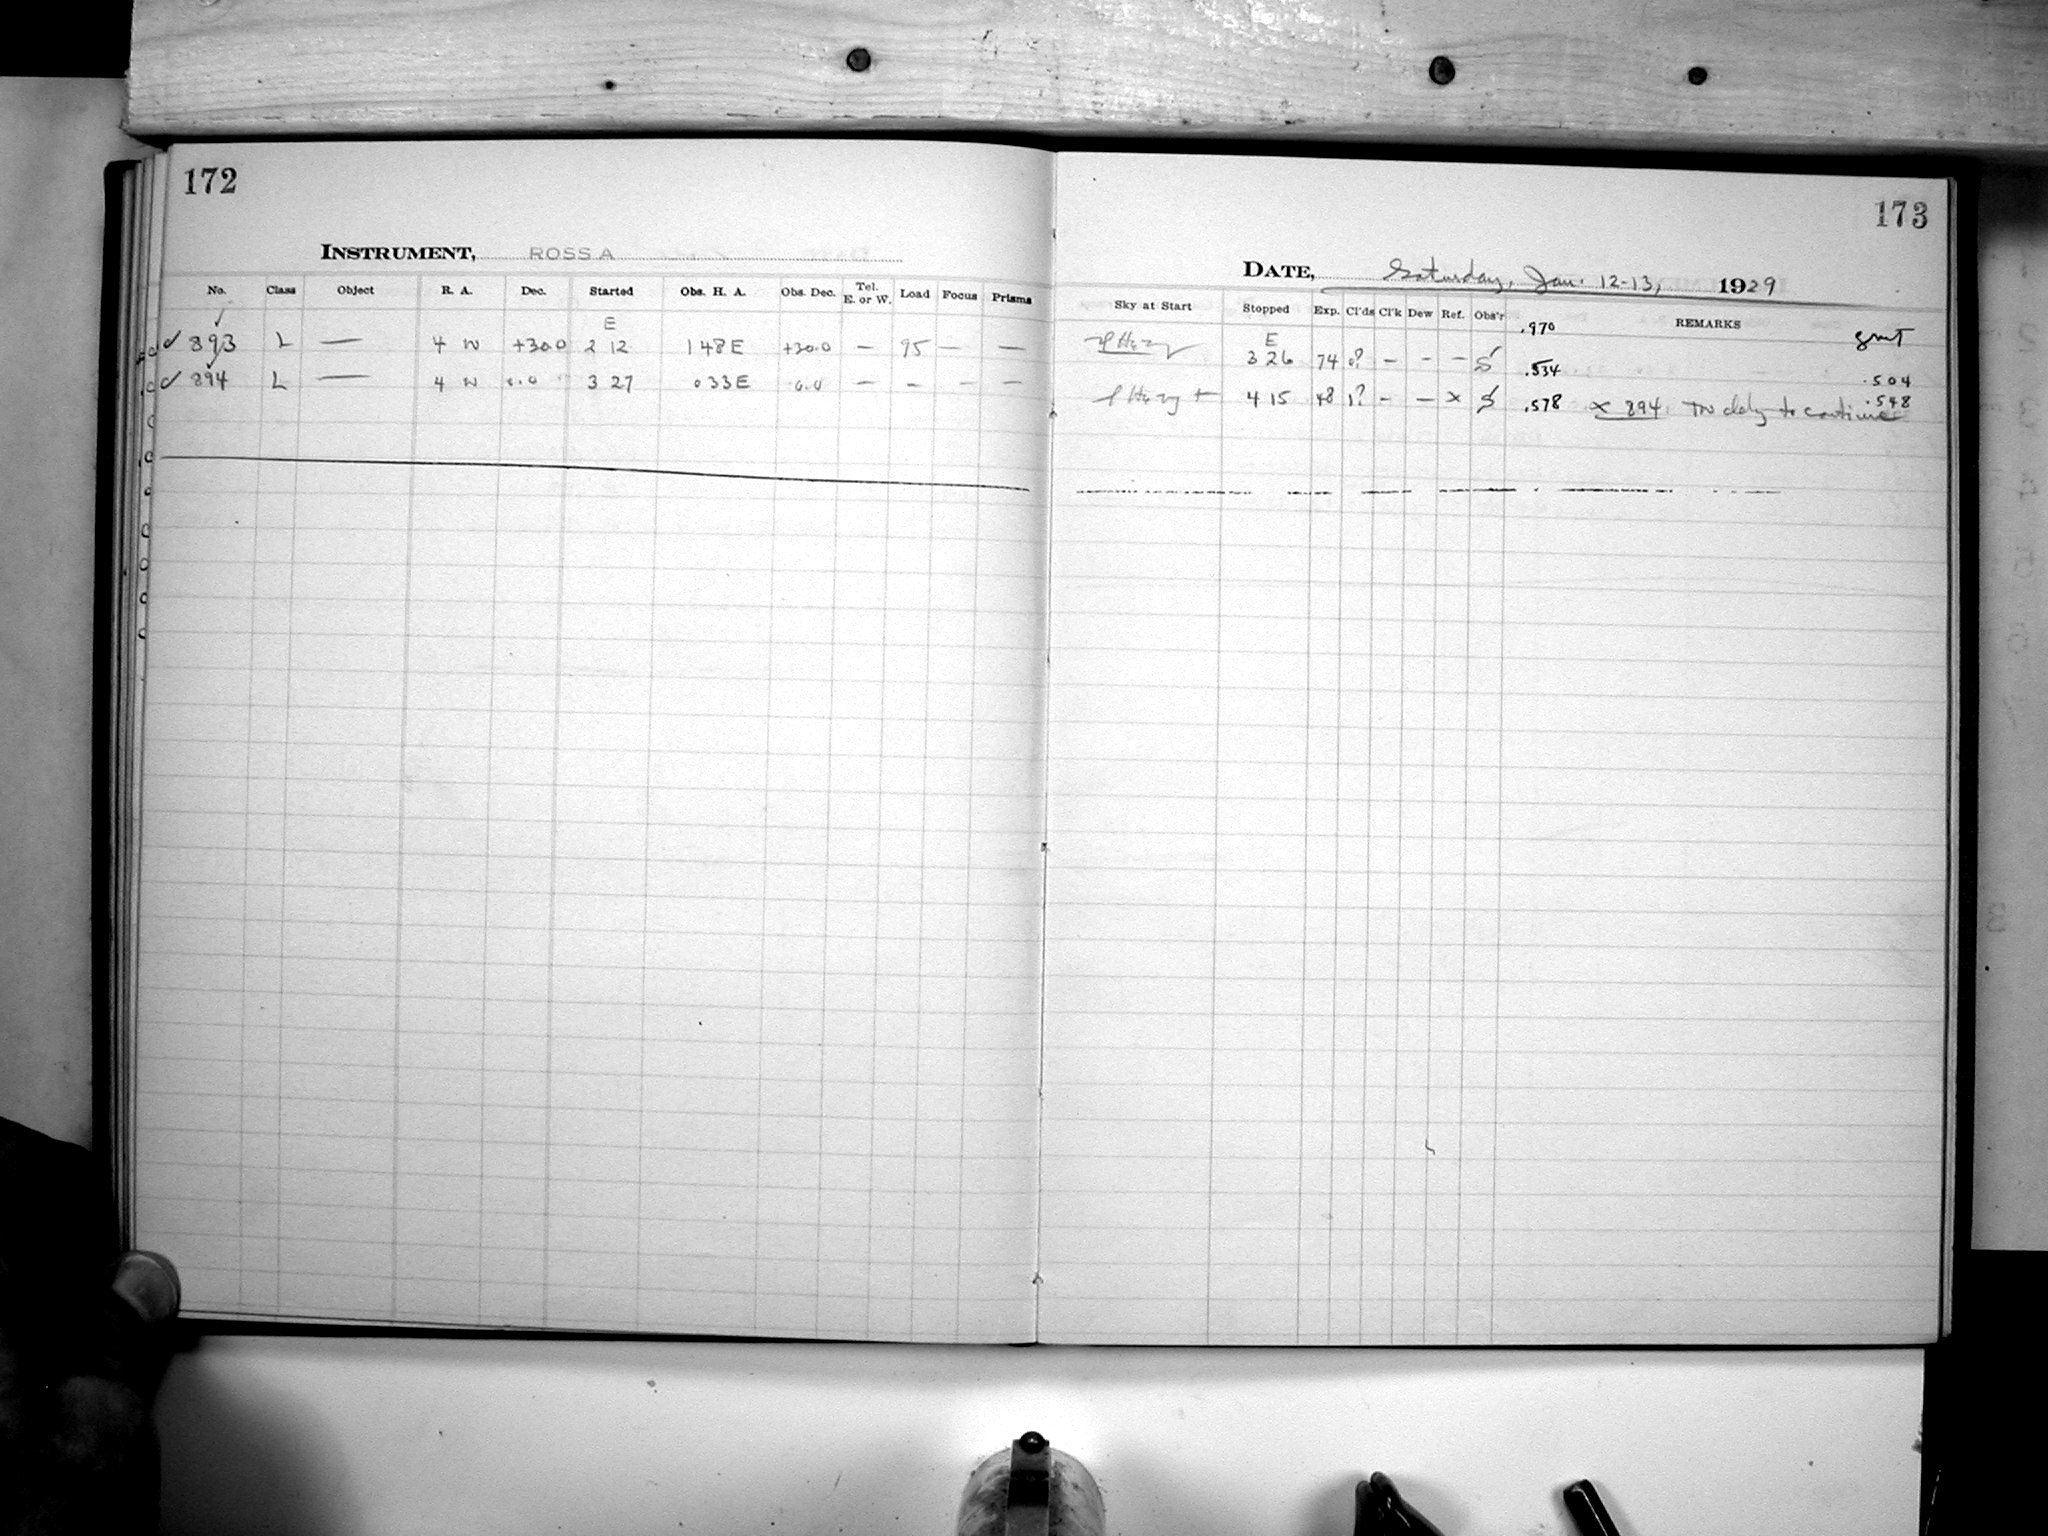 172
173
INSTRUMENT, ROSS A
DATE, Saturday, Jan. 12-13, 1929
No. Class Object R. A. Dec. Started Obs. H. A. Obs. Dec. Tel. E. or W. Load Focus Prisms
Sky at Start Stopped Exp. Cl'ds Cl'k Dew Ref. Obs'r REMARKS
E E .970 GMT
✓ 893 L — 4 W +30.0 2 12 1 48 E +30.0 — 95 — —
Hazy 3 26 74 0? — — — S .534 .504
✓ 894 L — 4 W 0.0 3 27 0 33 E 0.0 — — — —
Hazy + 4 15 48 1? — — x S .578 x 894 to continue .548